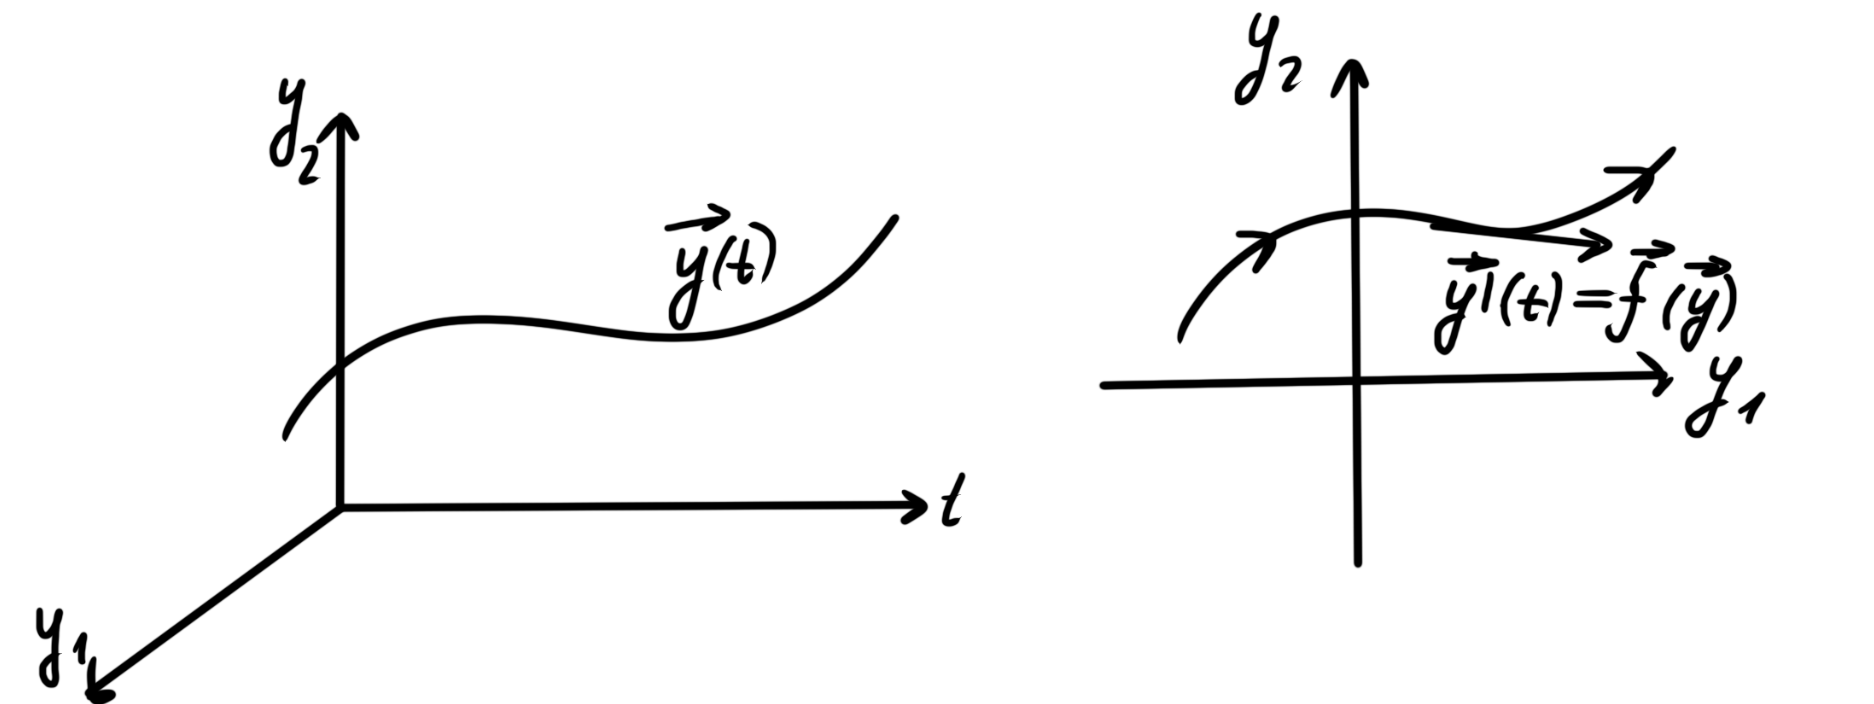 y₂
y⃗(t)
t
y₁
y₂
y⃗'(t) = f⃗(y⃗)
y₁